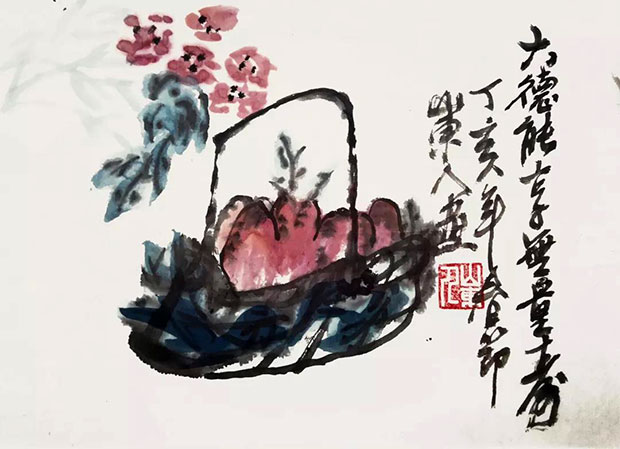 大德能享無量壽
丁亥年春節
山東人畫